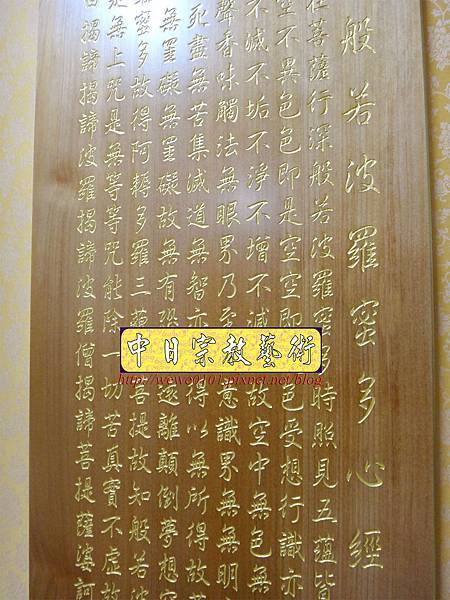 般若波羅蜜多心經
在菩薩行深般若波羅蜜多時照見五蘊皆
空不異色色即是空空即色受想行識亦
不滅不垢不淨不增不減故空中無色無
聲香味觸法無眼界乃至意識界無無明
死盡無苦集滅道無智亦得以無所得故
無罣礙無罣礙故無有恐遠離顛倒夢想
蜜多故得阿耨多羅三藐菩提故知般若波
是無上咒是無等等咒能除一切苦真實不虛故
曰揭諦揭諦波羅揭諦波羅僧揭諦菩提薩婆訶
中日宗教藝術
http://wewo0101.pixnet.net/blog